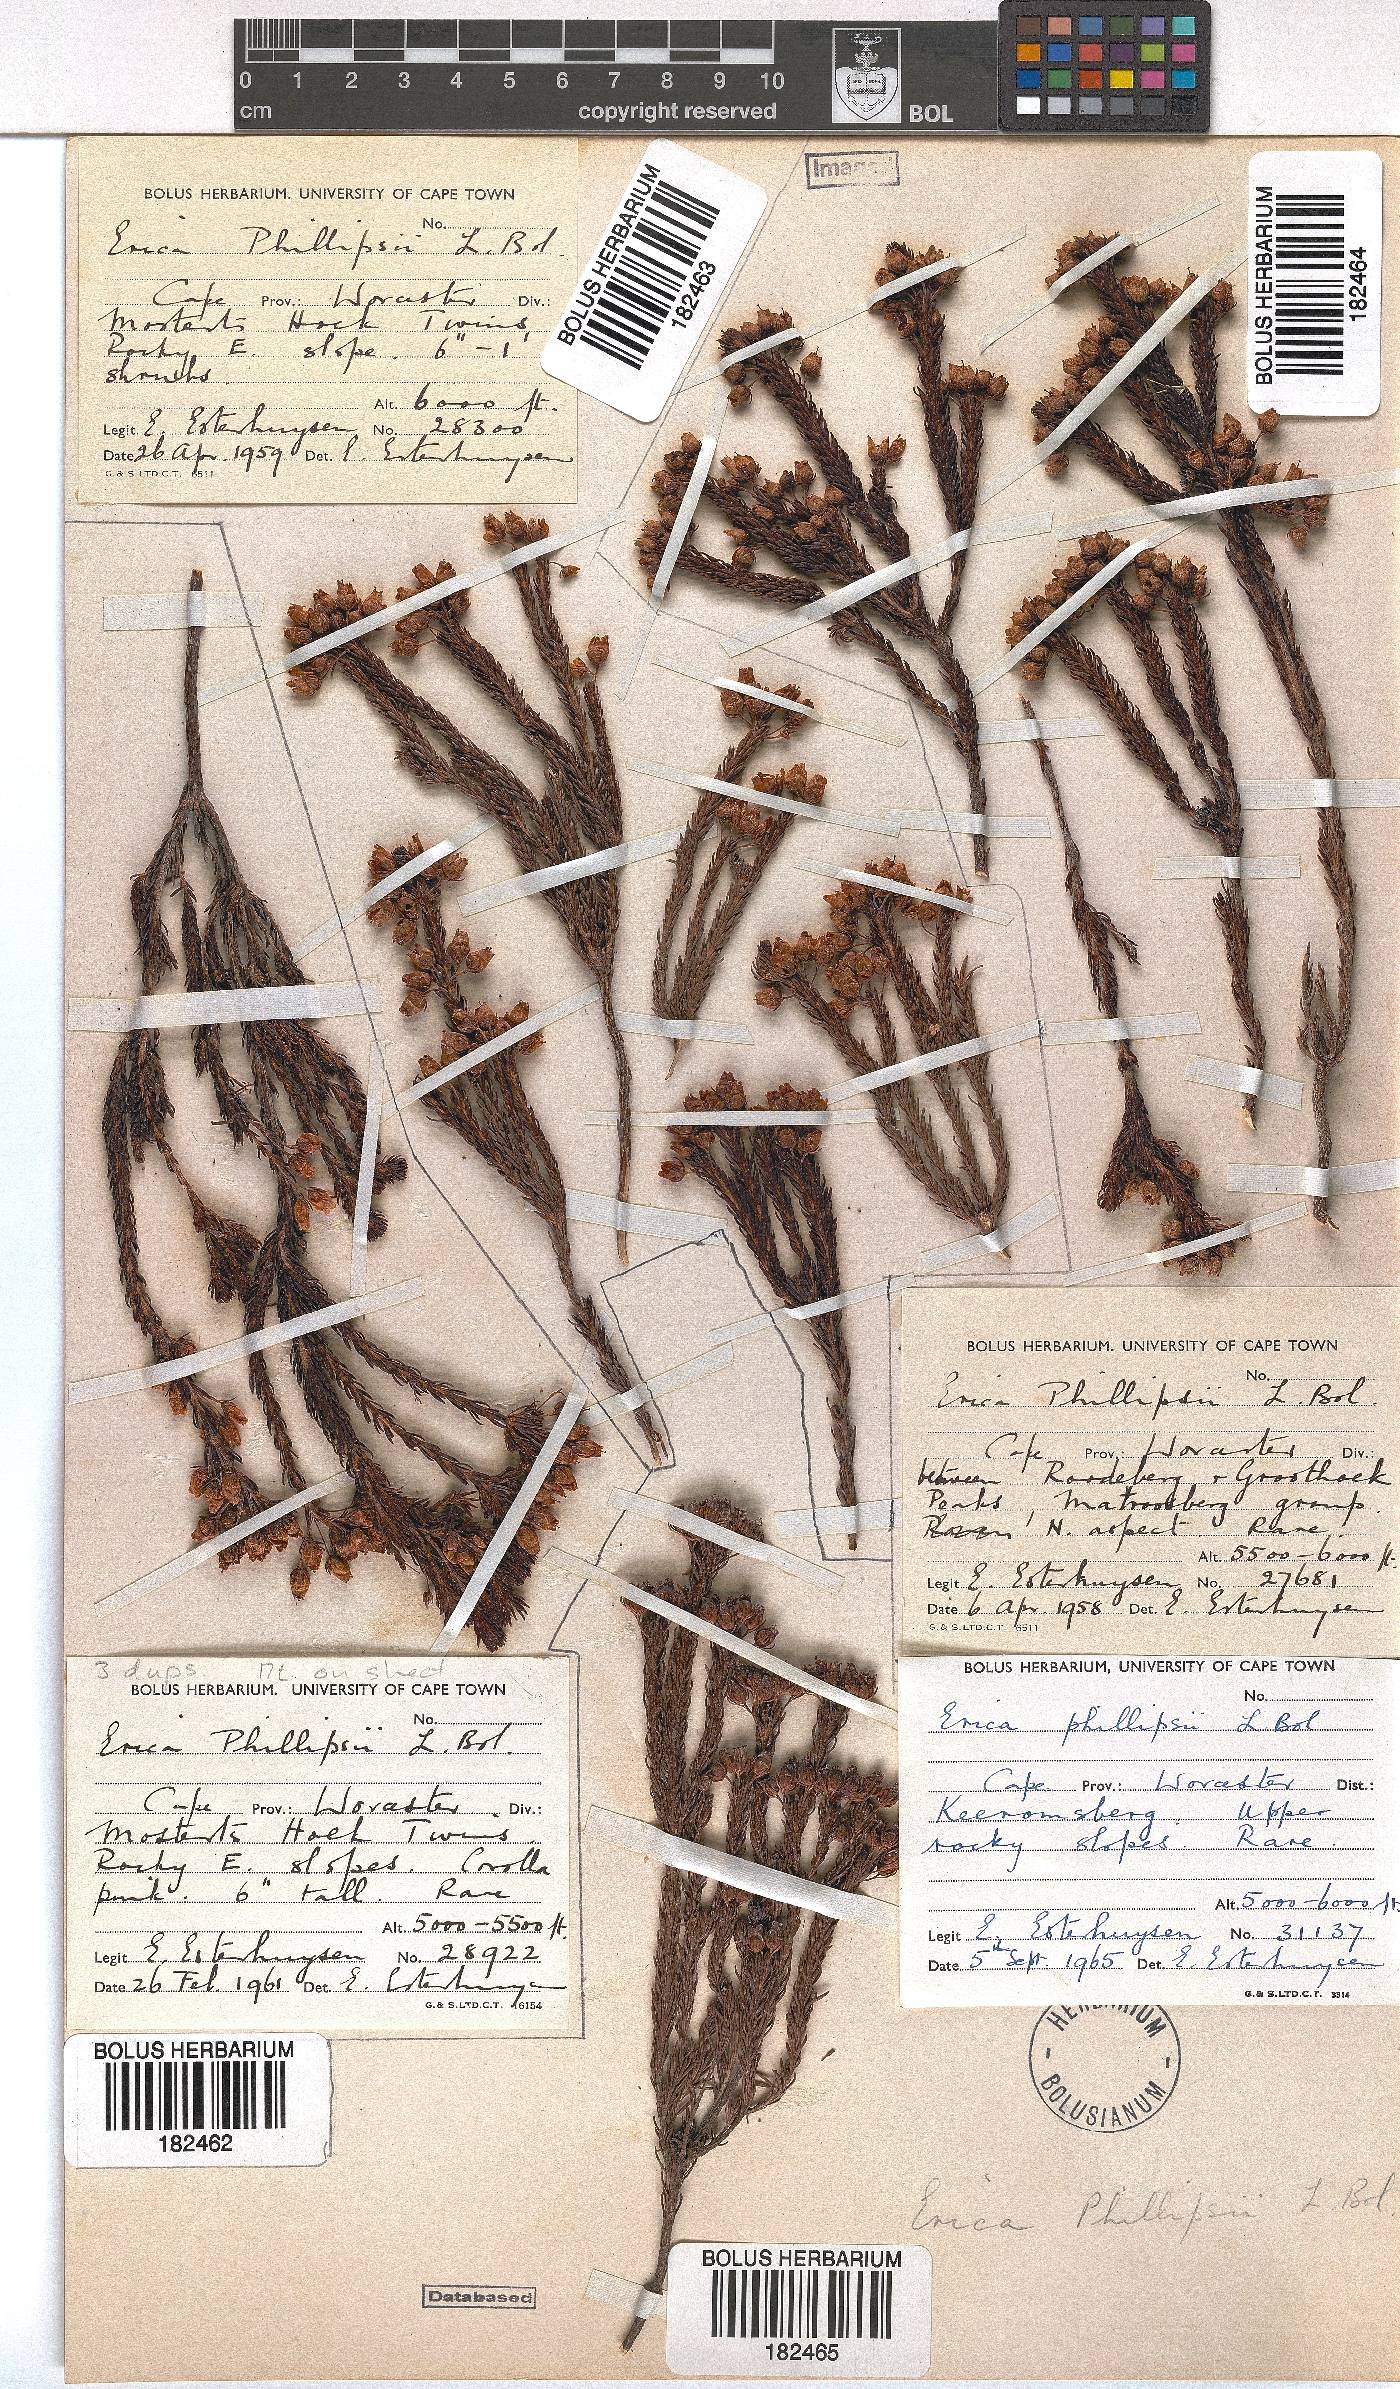 0 1 2 3 4 5 6 7 8 9 10
cm
copyright reserved
BOL
Imaged
BOLUS HERBARIUM. UNIVERSITY OF CAPE TOWN
No.
Erica Phillipsii L. Bol.
Cape Prov.: Worcester Div.:
Mosterts Hoek Twins
Rocky E. slope. 6" - 1'
shrubs.
Alt. 6000 ft.
Legit E. Esterhuysen No. 28300
Date 26 Apr. 1959 Det. E. Esterhuysen
G. & S. LTD.C.T. 6511
BOLUS HERBARIUM
182463
BOLUS HERBARIUM
182464
BOLUS HERBARIUM. UNIVERSITY OF CAPE TOWN
No.
Erica Phillipsii L. Bol.
Cape Prov.: Worcester Div.:
between Roodeberg & Groothoek
Peaks, Matroosberg group.
N. aspect. Rare.
Alt. 5500-6000 ft.
Legit E. Esterhuysen No. 27681
Date 6 Apr. 1958 Det. E. Esterhuysen
G. & S. LTD.C.T. 6511
BOLUS HERBARIUM, UNIVERSITY OF CAPE TOWN
No.
Erica phillipsii L Bol
Cape Prov.: Worcester Dist.:
Keeromsberg. Upper
rocky slopes. Rare.
Alt. 5000-6000 ft
Legit E. Esterhuysen No. 31137
Date 5th Sept. 1965 Det. E. Esterhuysen
G. & S. LTD.C.T. 3314
3 dups. Mt. on sheet
BOLUS HERBARIUM. UNIVERSITY OF CAPE TOWN
No.
Erica Phillipsii L. Bol.
Cape Prov.: Worcester Div.:
Mosterts Hoek Twins.
Rocky E. slopes. Corolla
pink. 6" tall. Rare
Alt. 5000-5500 ft.
Legit E. Esterhuysen No. 28922
Date 26 Feb. 1961 Det. E. Esterhuysen
G. & S. LTD.C.T. 16154
BOLUS HERBARIUM
182462
HERBARIUM
- BOLUSIANUM -
Erica Phillipsii L. Bol.
Databased
BOLUS HERBARIUM
182465